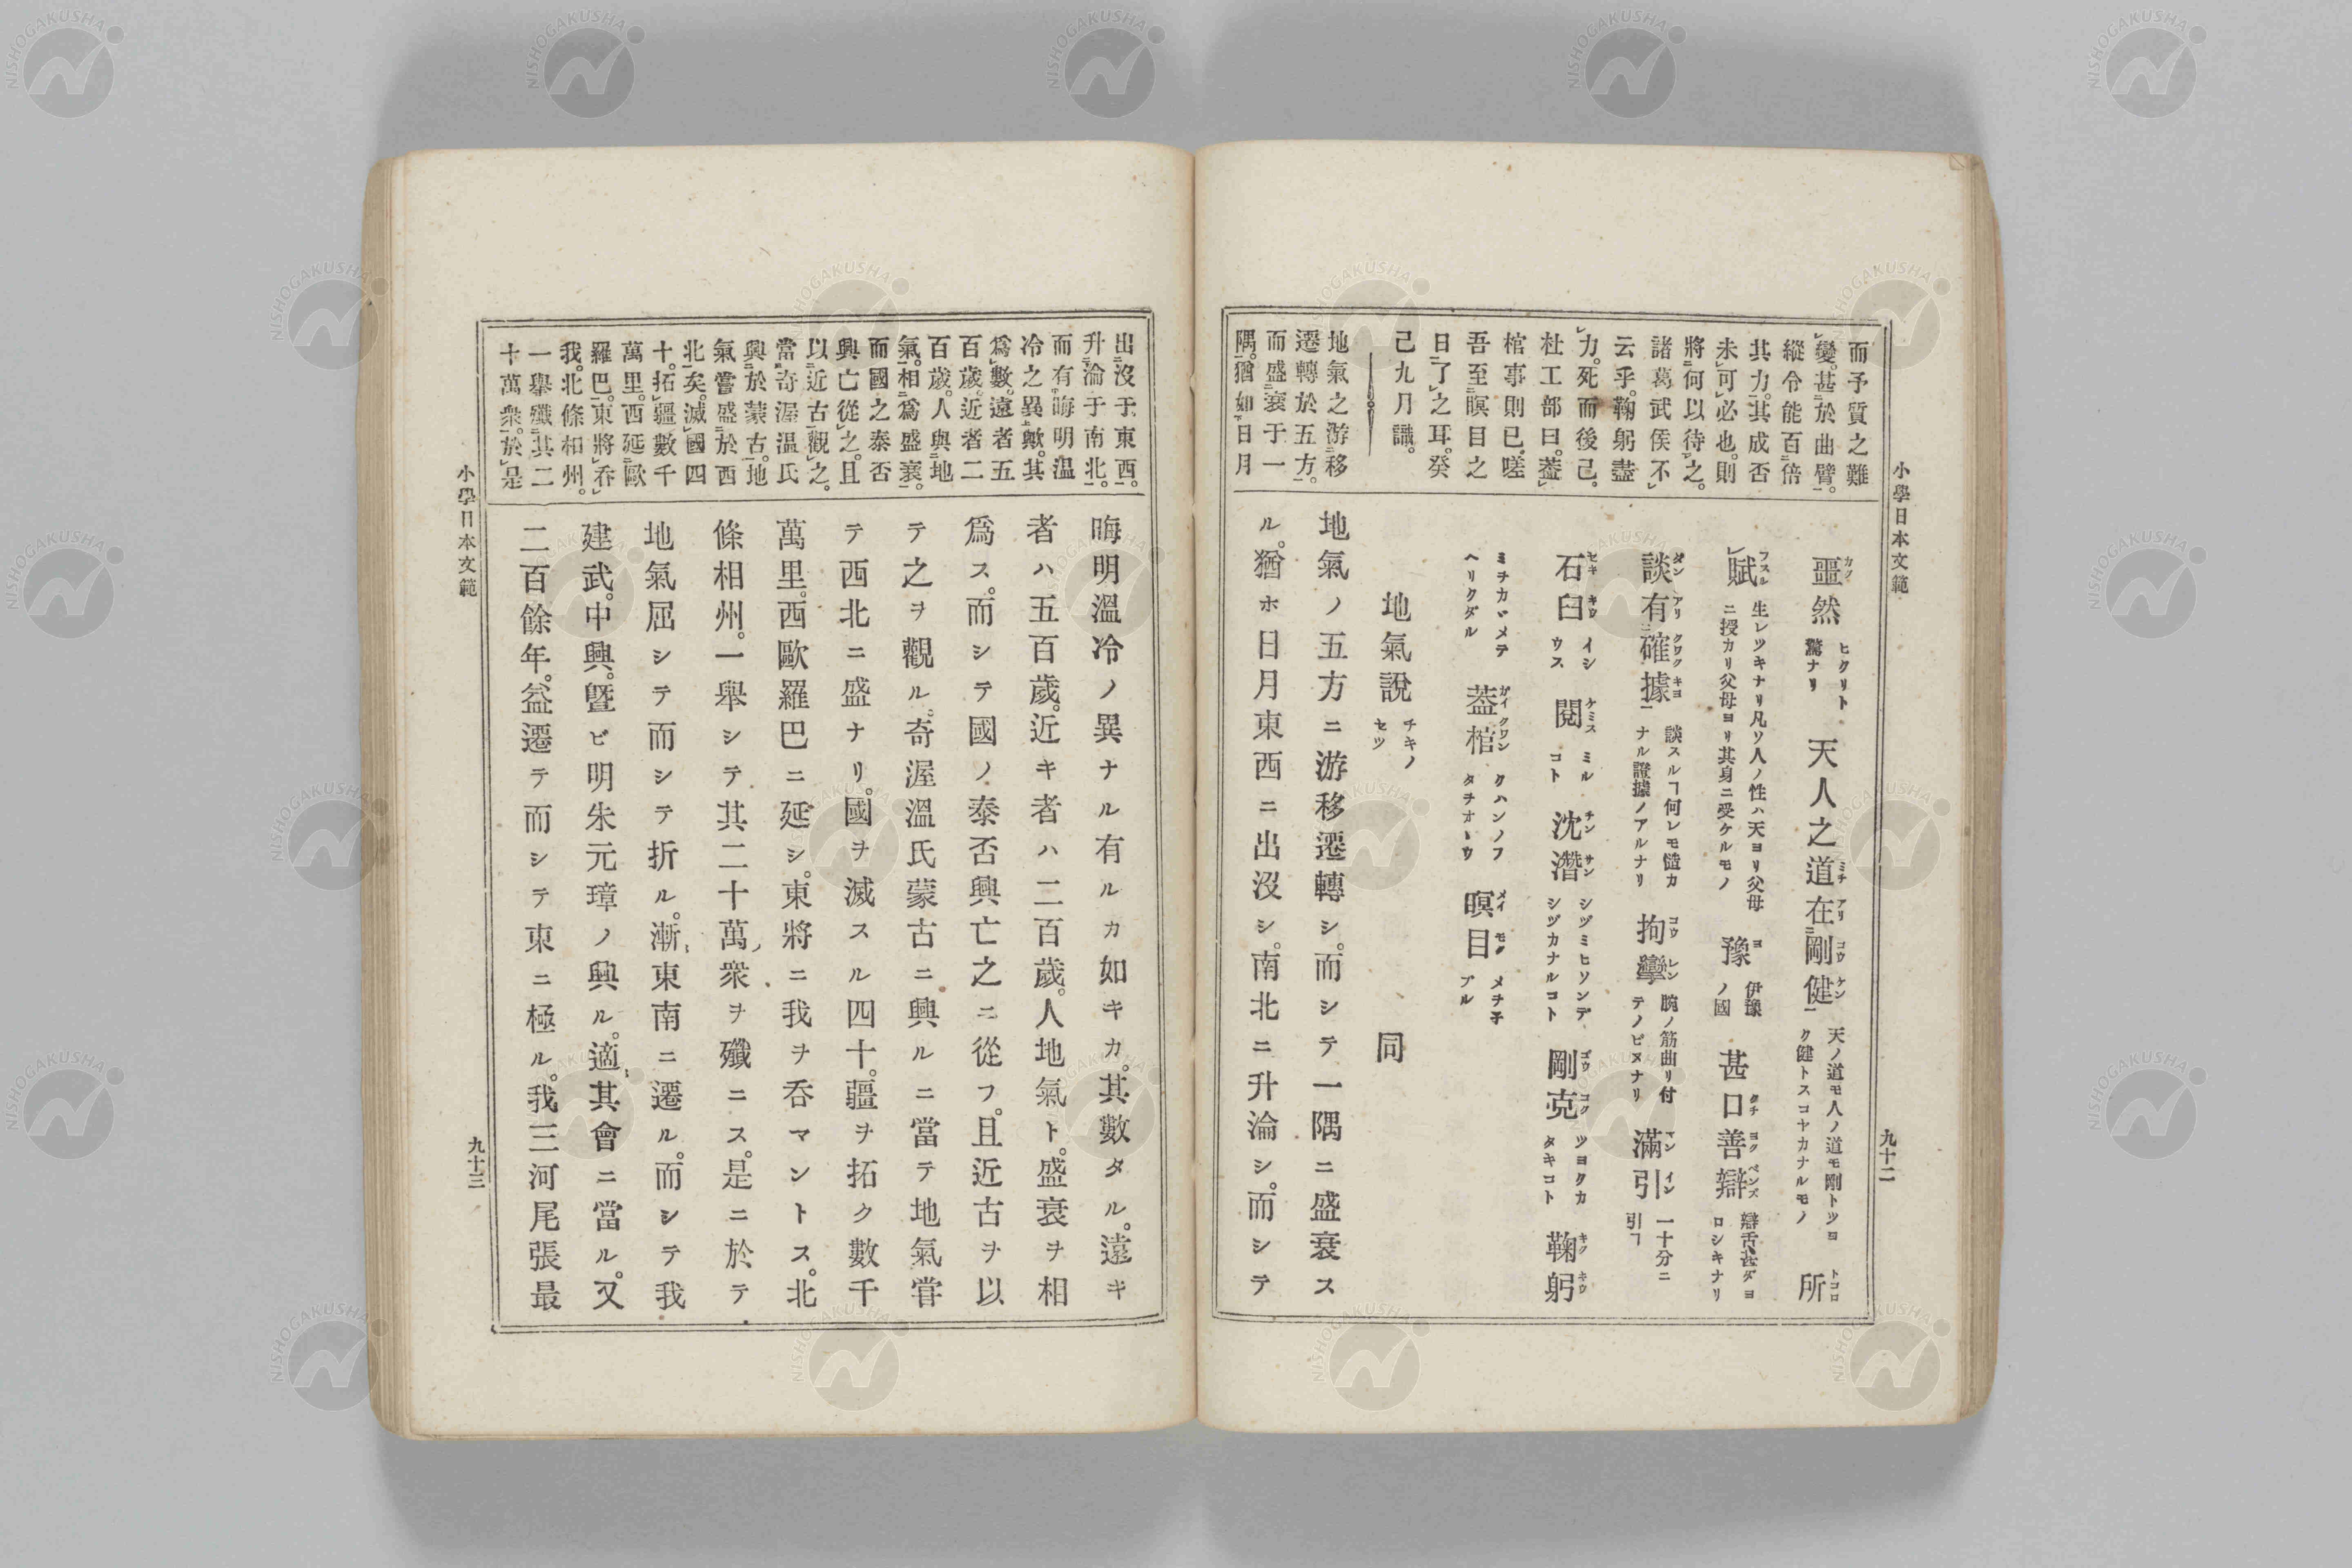 小學日本文範
九十二
而予質之難
變。甚於曲臂。
縱令能百倍
其力。其成否
未可必也。則
將何以待之。
諸葛武侯不
云乎。鞠躬盡
力。死而後已。
杜工部曰。蓋
棺事則已。嗟
吾至瞑目之
日了之耳。癸
己九月識。
地氣之游移
遷轉於五方。
而盛衰于一
隅。猶如日月
噩然 ヒクリト驚ナリ 天人之道在剛健 天ノ道モ人ノ道モ剛トツヨク健トスコヤカナルモノ 所
賦 生レツキナリ凡ソ人ノ性ハ天ヨリ父母ニ授カリ父母ヨリ其身ニ受ケルモノ 豫 伊豫ノ國 甚口善辯 辯舌甚ダヨロシキナリ
談有確據 談スルヿ何レモ慥カナル證據ノアルナリ 拘攣 腕ノ筋曲リ付テノビヌナリ 滿引 一十分ニ引ヿ
石臼 イシウス 閲 ミルコト 沈潛 シヅミヒソンデシヅカナルコト 剛克 ツヨクカタキコト 鞠躬
ミチカヾメテヘリクダル 蓋棺 クハンノフタチオヽウ 瞑目 メヲチブル
地氣說 チキノセツ 同
地氣ノ五方ニ游移遷轉シ。而シテ一隅ニ盛衰ス
ル。猶ホ日月東西ニ出沒シ。南北ニ升淪シ。而シテ
出沒于東西。
升淪于南北。
而有晦明温
冷之異歟。其
爲數。遠者五
百歲。近者二
百歲。人與地
氣。相爲盛衰。
而國之泰否
興亡從之。且
以近古觀之。
當奇渥温氏
興於蒙古。地
氣嘗盛於西
北矣。滅國四
十。拓疆數千
萬里。西延歐
羅巴。東將呑
我。北條相州。
一舉殲其二
十萬衆。於是
晦明溫冷ノ異ナル有ルカ如キカ。其數タル。遠キ
者ハ五百歲。近キ者ハ二百歲。人地氣ト。盛衰ヲ相
爲ス。而シテ國ノ泰否興亡之ニ從フ。且近古ヲ以
テ之ヲ觀ル。奇渥溫氏蒙古ニ興ルニ當テ地氣甞
テ西北ニ盛ナリ。國ヲ滅スル四十。疆ヲ拓ク數千
萬里。西歐羅巴ニ延シ。東將ニ我ヲ呑マントス。北
條相州。一舉シテ其二十萬衆ヲ殲ニス。是ニ於テ
地氣屈シテ而シテ折ル。漸東南ニ遷ル。而シテ我
建武。中興。曁ビ明朱元璋ノ興ル。適其會ニ當ル。又
二百餘年。益遷テ而シテ東ニ極ル。我三河尾張最
小學日本文範
九十三